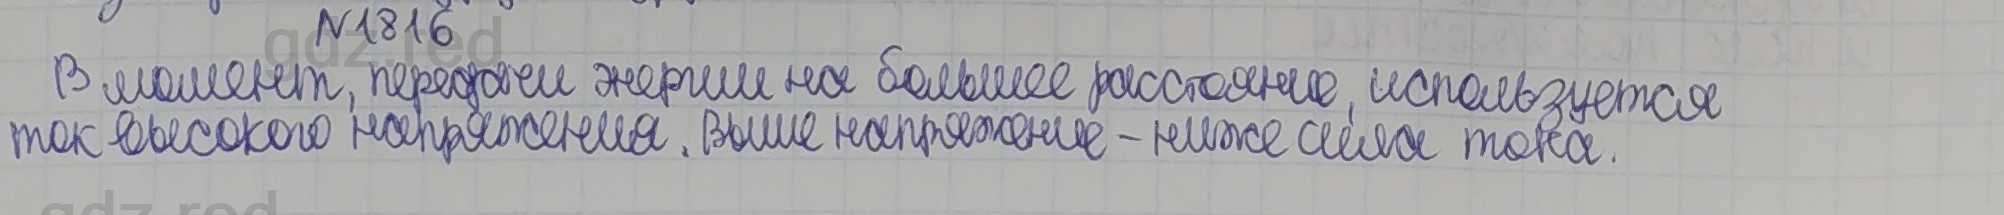 N1816
В момент, передачи энергии на большое расстояние, используется
ток высокого напряжения. Выше напряжение - ниже сила тока.
gdz.red
gdz.red